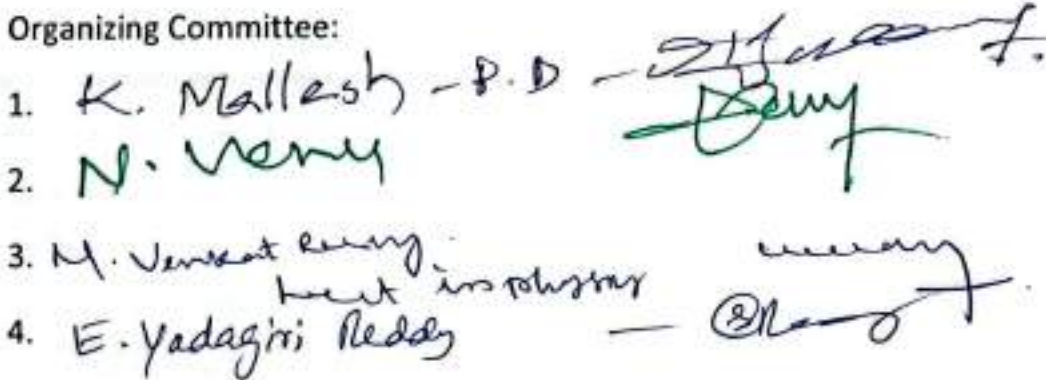 Organizing Committee:
1. K. Mallesh - P.D -
2. N. Venu
3. M. Venkat Reddy
Lect in physics
4. E. Yadagiri Reddy —